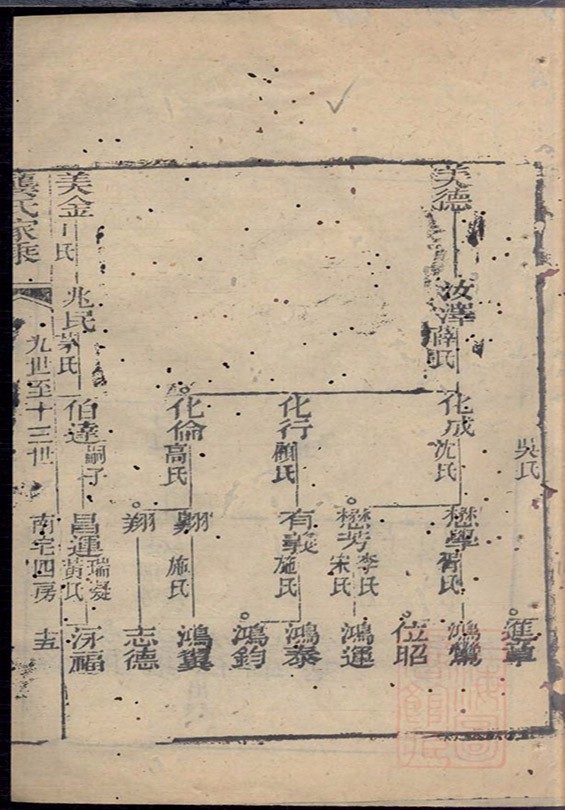 吳氏
進草
美德
汝澤 薛氏
化成 沈氏
懋學 胥氏
鴻鶱
位昭
懋芳 李氏 宋氏
鴻運
化行 顧氏
有義 施氏
鴻泰
鴻鈞
化倫 高氏
施氏
鴻翼
翔
志德
美金 氏
兆民 茅氏
伯達 嗣子
昌運 瑞凝 黃氏
泳福
龔氏家乘
九世至十三世
南宅四房
十五